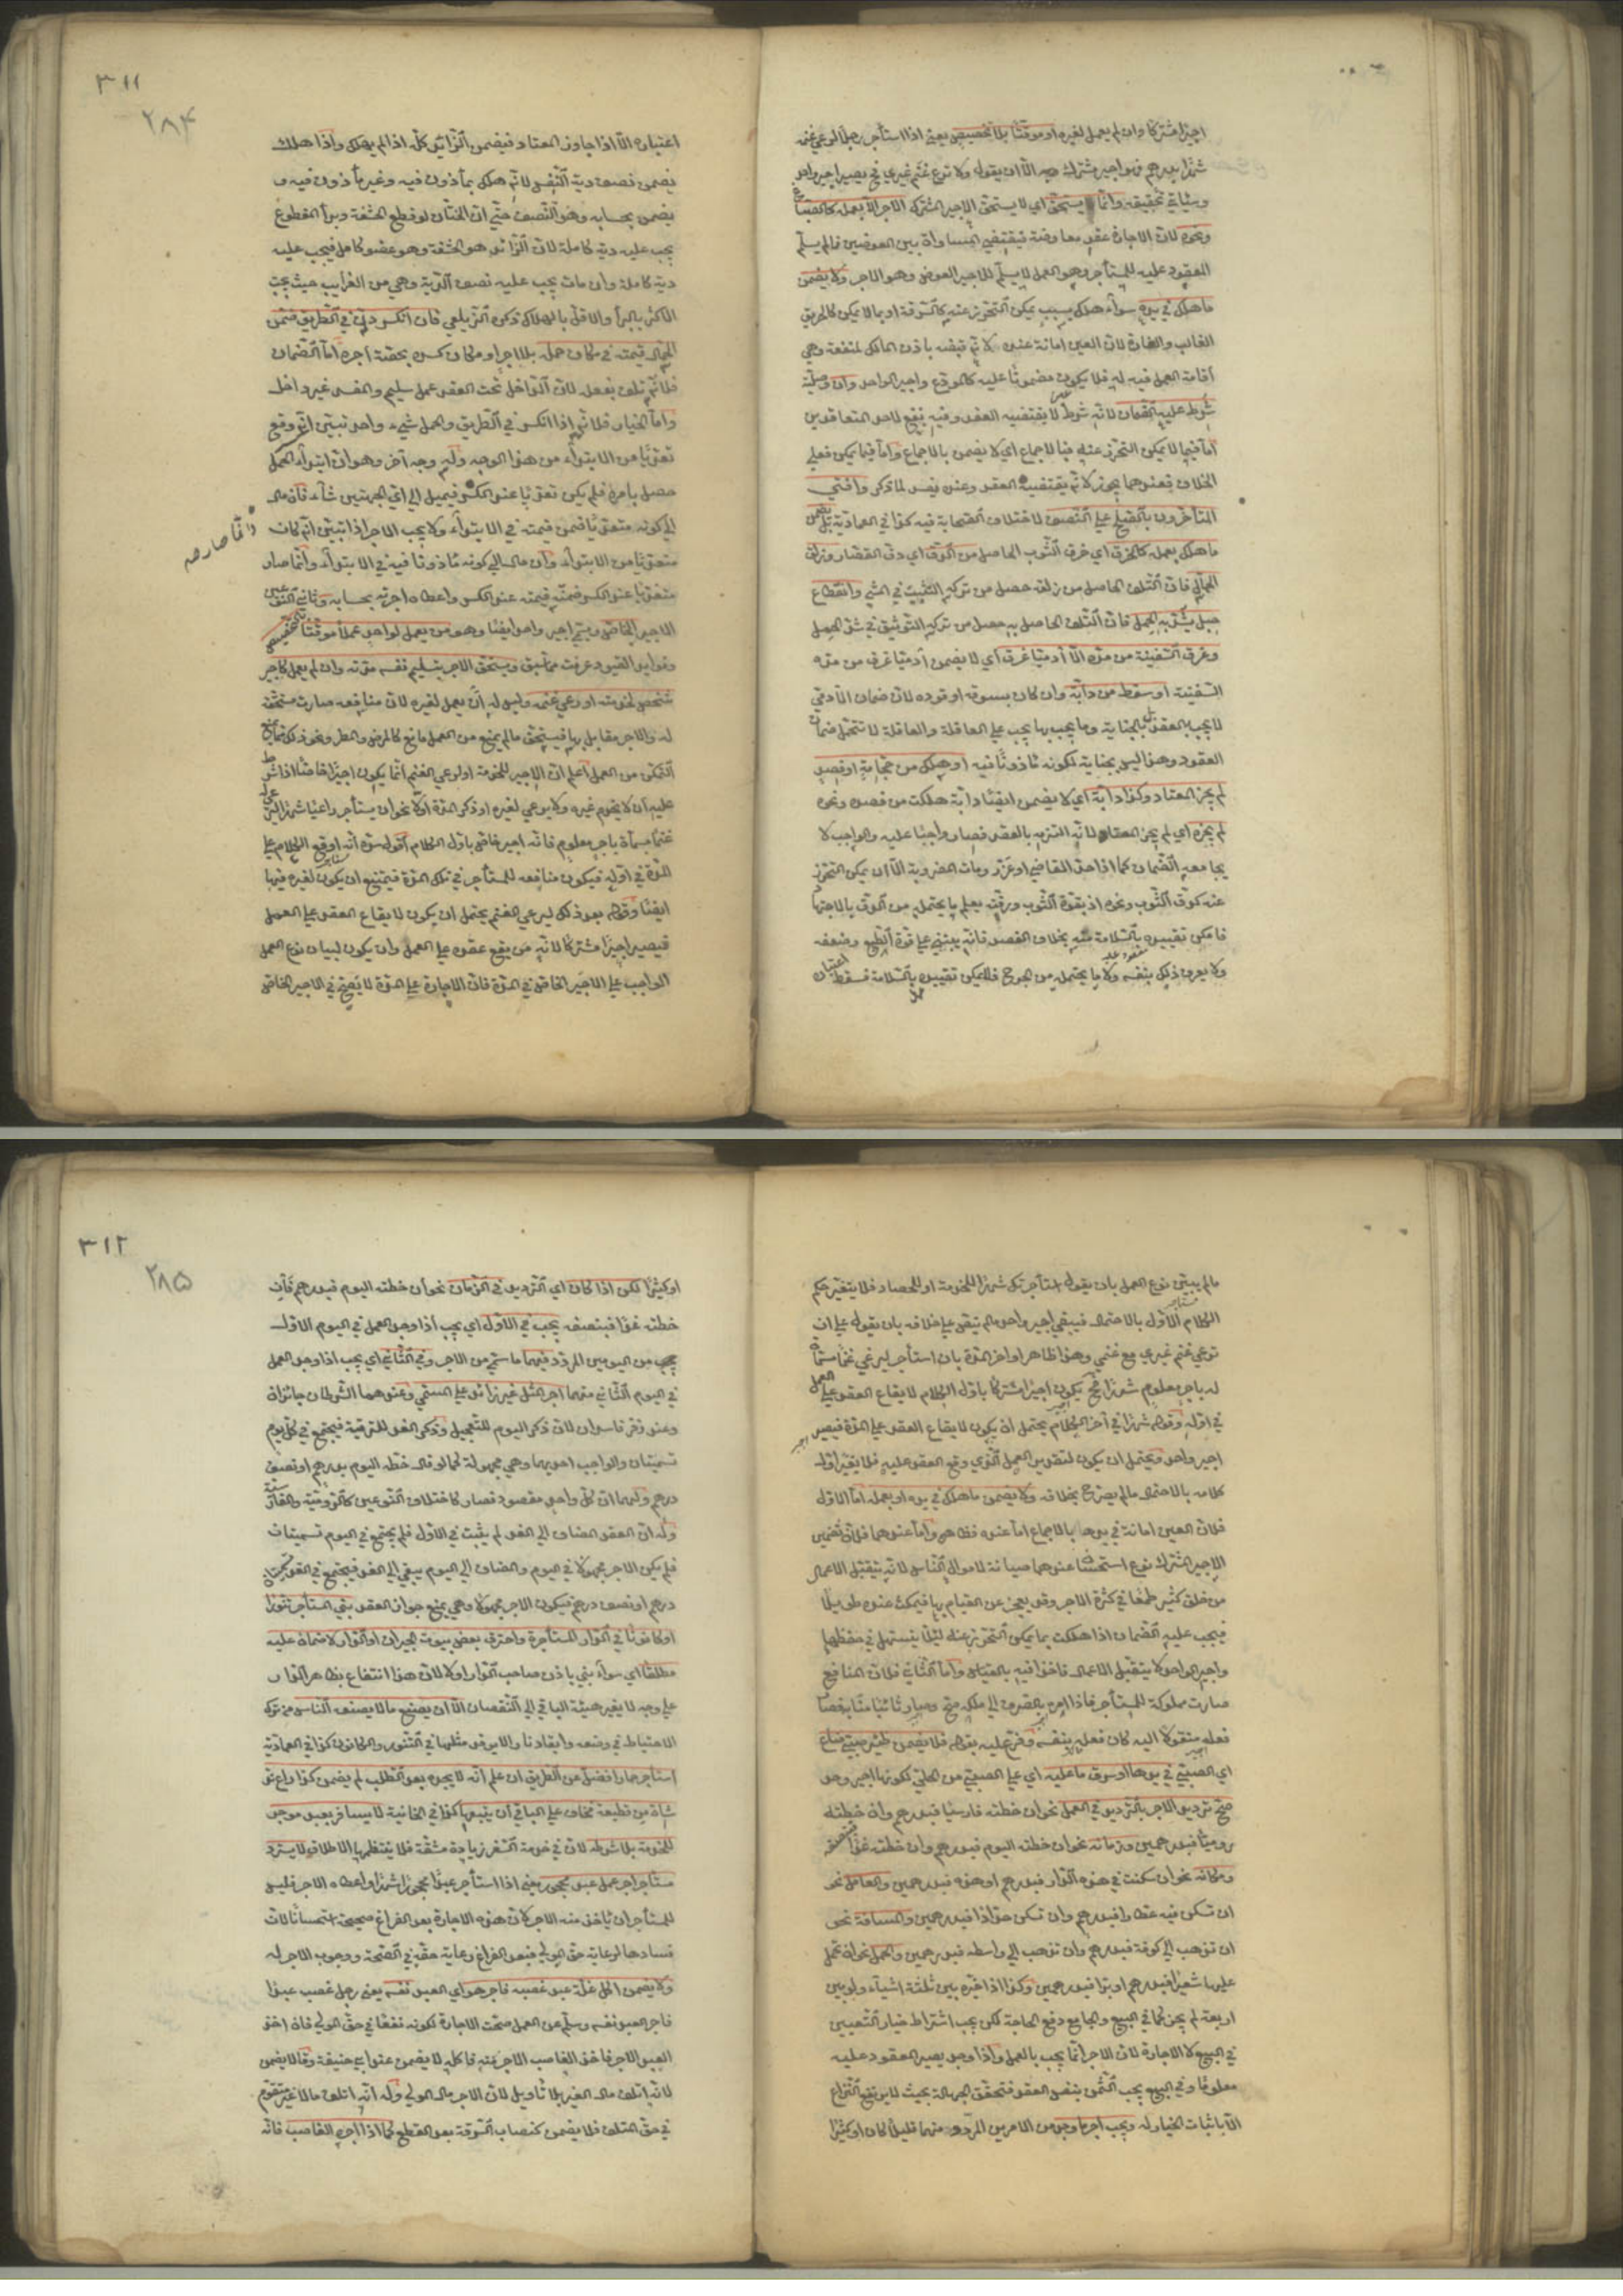 اجيرًا مشتركًا وان لم يعمل لغيره او موقّتًا بلا تخصيص يعني اذا استأجر رجلًا لرعي غنمه
شهرًا بدرهم فهو اجير مشترك الّا ان يقول ولا ترع غنم غيري فح يصير اجير واحد
وسيأتي تحقيقه وانّما يستحق اي لا يستحق الاجير المشترك الاجر الّا بعمله كالقصّار
ونحوه لانّ الاجارة عقد معاوضة فيقتضي المساواة بين العوضين فما لم يسلّم
المعقود عليه للمستأجر وهو العمل لا يسلّم للاجير العوض وهو الاجر ولا يضمن
ما هلك في يده سواء هلك بسبب يمكن التحرّز عنه كالسّرقة او بما لا يمكن كالحريق
الغالب والغارة لانّ العين امانة عنده لانّه قبضه باذن المالك لمنفعة وهي
اقامة العمل فيه له فلا يكون مضمونًا عليه كالمودع واجير الواحد وان وصليّة
شُرط عليه الضّمان لانّه شرط لا يقتضيه العقد وفيه نفع لاحد المتعاقدين
امّا فيما لا يمكن التحرّز عنه فبالاجماع اي لا يضمن بالاجماع وامّا فيما يمكن فعلى
الخلاف فعندهما يجوز لانّه يقتضيه العقد وعنده يفسد لما ذكر وافتى
المتأخّرون بالصّلح على النّصف لاختلاف الصّحابة فيه كذا في العماديّة بل يضمن
ما هلك بعمله كالخرق اي خرق الثّوب الحاصل من الدّقّ اي دقّ القصّار وزلق
الحمّال فانّ التّلف الحاصل من زلقه حصل من تركه التّثبّت في المشي وانقطاع
حبل يُشدّ به الحمل فانّ التّلف الحاصل به حصل من تركه التّوثيق في شدّ الحبل
وغرق السّفينة من مدّه الّا آدميًّا غرق اي لا يضمن آدميًّا غرق من مدّه
السّفينة او سقط من دابّة وان كان بسوقه او قوده لانّ ضمان الآدمي
لا يجب بالعقد بل بالجناية وما يجب بها يجب على العاقلة والعاقلة لا تتحمّل ضمان
العقود وهذا ليس بجناية لكونه مأذونًا فيه او هلك من حجامة او فصد
لم يجز المعتاد وكذا دابّة اي لا يضمن ايضًا دابّة هلكت من فصده ونحوه
لم يجزه اي لم يجز المعتاد لانّه التزمه بالعقد فصار واجبًا عليه والواجب لا
يجامعه الضّمان كما اذا حدّ القاضي او عزّر ومات المضروب به الّا ان يمكن التحرّز
عنه كدقّ الثّوب ونحوه اذ بقوّة الثّوب ورقّته يعلم ما يحتمله من الدّقّ بالاجتهاد
فامكن تقييده بالسّلامة منه بخلاف الفصد فانّه يبتني على قوّة الطّبع وضعفه
ولا يعرف ذلك بنفسه ولا ما يحتمله من الجرح فلا يمكن تقييده بالسّلامة فسقط اعتباره
٣١١
٢٨۴
اعتباره الّا اذا جاوز المعتاد فيضمن الزّائد كلّه اذا لم يهلك واذا هلك
يضمن نصف دية النّفس لانّه هلك بمأذون فيه وغير مأذون فيه و
يضمن بحسابه وهو النّصف حتّى انّ الختّان لو قطع الحشفة وبرأ المقطوع
يجب عليه دية كاملة لانّ الزّائد هو الحشفة وهو عضو كامل فيجب عليه
دية كاملة وان مات يجب عليه نصف الدّية وهي من الغرايب حيث يجب
الاكثر بالبرأ والاقلّ بالهلاك ذكره الزّيلعي فان انكسر دنّ في الطّريق ضمّن
الحمّال قيمته في مكان حمله بلا اجر او مكان كسره بحصّة اجره امّا الضّمان
فلانّه تلف بفعله لانّ الدّاخل تحت العقد عمل سليم والمفسد غير داخل
وامّا الخيار فلانّه اذا انكسر في الطّريق والحمل شيء واحد تبيّن انّه وقع
تعدّيًا من الابتداء من هذا الوجه وله وجه آخر وهو انّ ابتداء الحمل
حصل بامره فلم يكن تعدّيًا عند الكسر فيميل الى ايّ الجهتين شاء فان مال
الى كونه متعدّيًا ضمن قيمته في الابتداء ولا يجب الاجر اذا تبيّن انّه كان
متعدّيًا من الابتداء وان مال الى كونه مأذونًا فيه في الابتداء وانّما صار
متعدّيًا عند الكسر ضمنه قيمته عند الكسر واعطاه اجرته بحسابه وثاني النّوعين
الاجير الخاصّ ويسمّى اجير واحد ايضًا وهو من يعمل لواحد عملًا موقّتًا بالتّخصيص
وفوايد القيود عرفت ممّا سبق ويستحقّ الاجر بتسليم نفسه مدّته وان لم يعمل كاجير
شخص لخدمته او رعي غنمه وليس له ان يعمل لغيره لانّ منافعه صارت مستحقّة
له والاجر مقابل بها فيستحقّ ما لم يمنع من العمل مانع كالمرض والمطر ونحو ذلك ممّا يمنع
التمكّن من العمل اعلم انّ الاجير للخدمة او لرعي الغنم انّما يكون اجيرًا خاصًّا اذا شرط
عليه ان لا يخدم غيره ولا يرعى لغيره او ذكر المدّة اوّلا نحو ان يستأجر راعيًا شهرًا ليرعى له
غنمًا مسمّاة باجر معلوم فانّه اجير خاصّ باوّل الكلام اقول سرّه انّه اوقع الكلام على
المدّة في اوّله فيكون منافعه للمستأجر في تلك المدّة فيمتنع ان يكون لغيره فيها
ايضًا وقوله بعد ذلك ليرعى الغنم يحتمل ان يكون لايقاع العقد على العمل
فيصير اجيرًا مشتركًا لانّه من يقع عقده على العمل وان يكون لبيان نوع العمل
الواجب على الاجير الخاصّ في المدّة فانّ الاجارة على المدّة لا يصحّ في الاجير الخاصّ
وانّما صار صح
ما لم يبيّن نوع العمل بان يقول استأجرتك شهرًا للخدمة او للحصاد فلا يتغيّر حكم
الكلام الاوّل بالاحتمال فيبقى اجير واحد ما لم ينصّ على خلافه بان يقول على ان
ترعى غنم غيري مع غنمي وهذا ظاهر او اخّر المدّة بان استأجر ليرعى غنمًا مسمّاة
له باجر معلوم شهرًا فح يكون اجيرًا مشتركًا باوّل الكلام لايقاع العقد على العمل
في اوّله وقوله شهرًا في آخر الكلام يحتمل ان يكون لايقاع العقد على المدّة فيصير
اجير واحد ويحتمل ان يكون لتقدير العمل الّذي وقع العقد عليه فلا يغيّر اوّل
كلامه بالاحتمال ما لم يصرّح بخلافه ولا يضمن ما هلك في يده او بعمله امّا الاوّل
فلانّ العين امانة في يده بالاجماع امّا عنده فظاهر وامّا عندهما فلانّ تضمين
الاجير المشترك نوع استحسان عندهما صيانة لاموال النّاس لانّه يتقبّل الاعمال
من خلق كثير طمعًا في كثرة الاجر وقد يعجز عن القيام بها فيمكث عنده طويلًا
فيجب عليه الضّمان اذا هلكت بما يمكن التحرّز عنه لئلّا يتساهل في حفظها
واجير الواحد لا يتقبّل الاعمال فاخذا فيه بالقياس وامّا الثّاني فلانّ المنافع
صارت مملوكة للمستأجر فاذا امره بالصّرف الى ملكه صحّ وصار نائبًا منابه فصار
فعله منقولًا اليه كان فعله بنفسه وفرّع عليه بقوله فلا يضمن ظئر صبيّ ضاع
اي الصبيّ في يدها او سرق ما عليه اي على الصبيّ من الحلي لكونها اجير واحد
صحّ ترديد الاجر بالتّرديد في العمل نحو ان خطته فارسيًّا فبدرهم وان خطته
روميًّا فبدرهمين وزمانه نحو ان خطته اليوم فبدرهم وان خطته غدًا فبنصفه
ومكانه نحو ان سكنت في هذه الدّار فبدرهم او هذه فبدرهمين والعامل نحو
ان تسكن فيه عطّارا فبدرهم وان تسكن حدّادا فبدرهمين والمسافة نحو
ان تذهب الى كوفة فبدرهم وان تذهب الى واسط فبدرهمين والحمل نحو ان تحمل
عليها شعيرًا فبدرهم او برًّا فبدرهمين وكذا اذا خيّره بين ثلثة اشياء ولو بين
اربعة لم يجز كما في البيع والجامع دفع الحاجة لكن يجب اشتراط خيار التّعيين
في البيع لا الاجارة لانّ الاجر انّما يجب بالعمل واذا وجد يصير المعقود عليه
معلومًا وفي البيع يجب الثّمن بنفس العقد فتحقّق الجهالة بحيث لا يرتفع النّزاع
الّا باثبات الخيار له ويجب اجر ما وجد من الامرين المردّد منهما قليلًا كان او كثيرًا
٣١٢
٢٨۵
او كثيرًا لكن اذا كان اي التّرديد في الزّمان نحو ان خطته اليوم فبدرهم فان
خطته غدًا فبنصفه يجب في الاوّل اي يجب اذا وجد العمل في اليوم الاوّل
من اليومين المردّد فيهما ما سمّي من الاجر وفي الثّاني اي يجب اذا وجد العمل
في اليوم الثّاني منهما اجر المثل غير زائد على المسمّى وعندهما الشّرطان جائزان
وعند زفر فاسدان لانّ ذكر اليوم للتّعجيل وذكر الغد للترفية فيجتمع في كلّ يوم
تسميتان والواجب احديهما وهي مجهولة كما لو قال خطه اليوم بدرهم او نصف
درهم ولهما انّ كلّ واحد مقصود فصار كاختلاف النّوعين كالرّوميّة والفارسيّة
وله انّ العقد المضاف الى الغد لم يثبت في الاوّل فلم يجتمع في اليوم تسميتان
فلم يكن الاجر مجهولًا في اليوم والمضاف الى اليوم يبقى الى الغد فيجتمع في الغد تسميتان
درهم او نصف درهم فيكون الاجر مجهولًا وهي يمنع جواز العقد بنى المستأجر تنّورًا
او كانونًا في الدّار المستأجرة واحترق بعض بيوت الجيران او الدّار لا ضمان عليه
مطلقًا اي سواء بنى باذن صاحب الدّار او لا لانّ هذا انتفاع بظاهر الدّار
على وجه لا يغيّر هيئة الباقي الى النّقصان الّا ان يصنع ما لا يصنعه النّاس من ترك
الاحتياط في وضعه وايقاد نار لا يوقد مثلها في التّنّور والكانون كذا في العماديّة
استأجر حمارا فضلّ عن الطّريق ان علم انّه لا يجده بعد الطّلب لم يضمن كذا راع ندّ
شاة من قطيعه فخاف على الباقي ان يتبعها كذا في الخانية لا يسافر بعبد موجر
للخدمة بلا شرطه لانّ في خدمة السّفر زيادة مشقّة فلا ينتظمها الاطلاق لا يستردّ
مستأجر اجر عمل عبد محجور يعني اذا استأجر عبدًا محجورًا شهرًا واعطاه الاجر فليس
للمستأجر ان يأخذ منه الاجر لانّ هذه الاجارة بعد الفراغ صحيحة استحسانًا لانّ
فسادها لرعاية حقّ المولى فبعد الفراغ رعاية حقّه في الصّحة ووجوب الاجر له
ولا يضمن آكل غلّة عبد غصبه فاجر هو اي العبد نفسه يعني رجل غصب عبدًا
فاجر العبد نفسه وسلّم عن العمل صحّت الاجارة لكونه نفعًا في حقّ المولى فان اخذ
العبد الاجر فاخذ الغاصب الاجر منه فاكله لا يضمن عند ابي حنيفة وقالا يضمن
لانّه اتلف مال الغير بلا تأويل لانّ الاجر مال المولى وله انّه اتلف مالا غير متقوّم
في حقّ المتلف فلا يضمن كنصاب السّرقة بعد القطع كما اذا آجره الغاصب فانّه